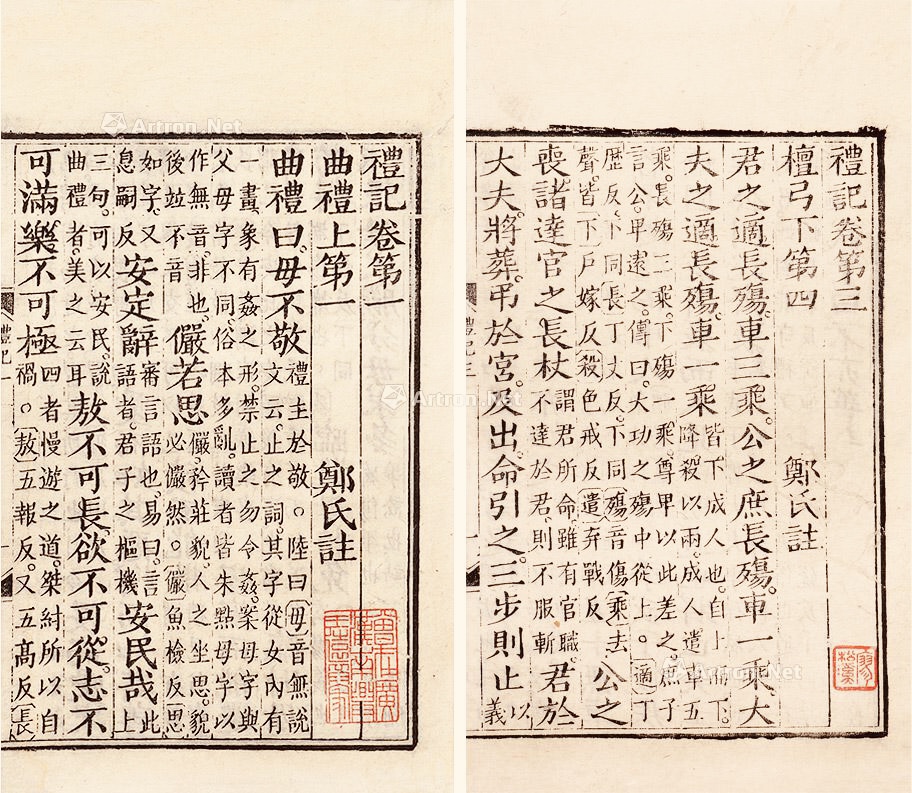 禮記卷第一
曲禮上第一 鄭氏註
曲禮曰毋不敬禮主於敬○陸曰毋音無說文云止之詞其字從女內有
一畫象有姦之形禁止之勿令姦案母字與父母字不同俗本多亂讀者皆朱點母字以
作無音非也後並不音儼若思儼矜莊貌人之坐思貌必儼然○儼魚檢反思
如字又息嗣反安定辭審言語也易曰言語者君子之樞機安民哉此上
三句可以安民說曲禮者美之云耳敖不可長欲不可從志不
可滿樂不可極四者慢遊之道桀紂所以自禍○敖五報反又五高反長
禮記一
禮記卷第三
檀弓下第四 鄭氏註
君之適長殤車三乘公之庶長殤車一乘大
夫之適長殤車一乘皆下成人也自上而下降殺以兩成人遣車五
乘長殤三乘下殤一乘尊卑以此差之庶子言公卑遠之傳曰大功之殤中從上○適丁
歷反下同長丁丈反下同殤音傷乘去聲皆下戶嫁反殺色戒反遣棄戰反公之
喪諸達官之長杖謂君所命雖有官職不達於君則不服斬君於
大夫將葬弔於宮及出命引之三步則止以義
禮記三
Artron.Net
Artron.Net